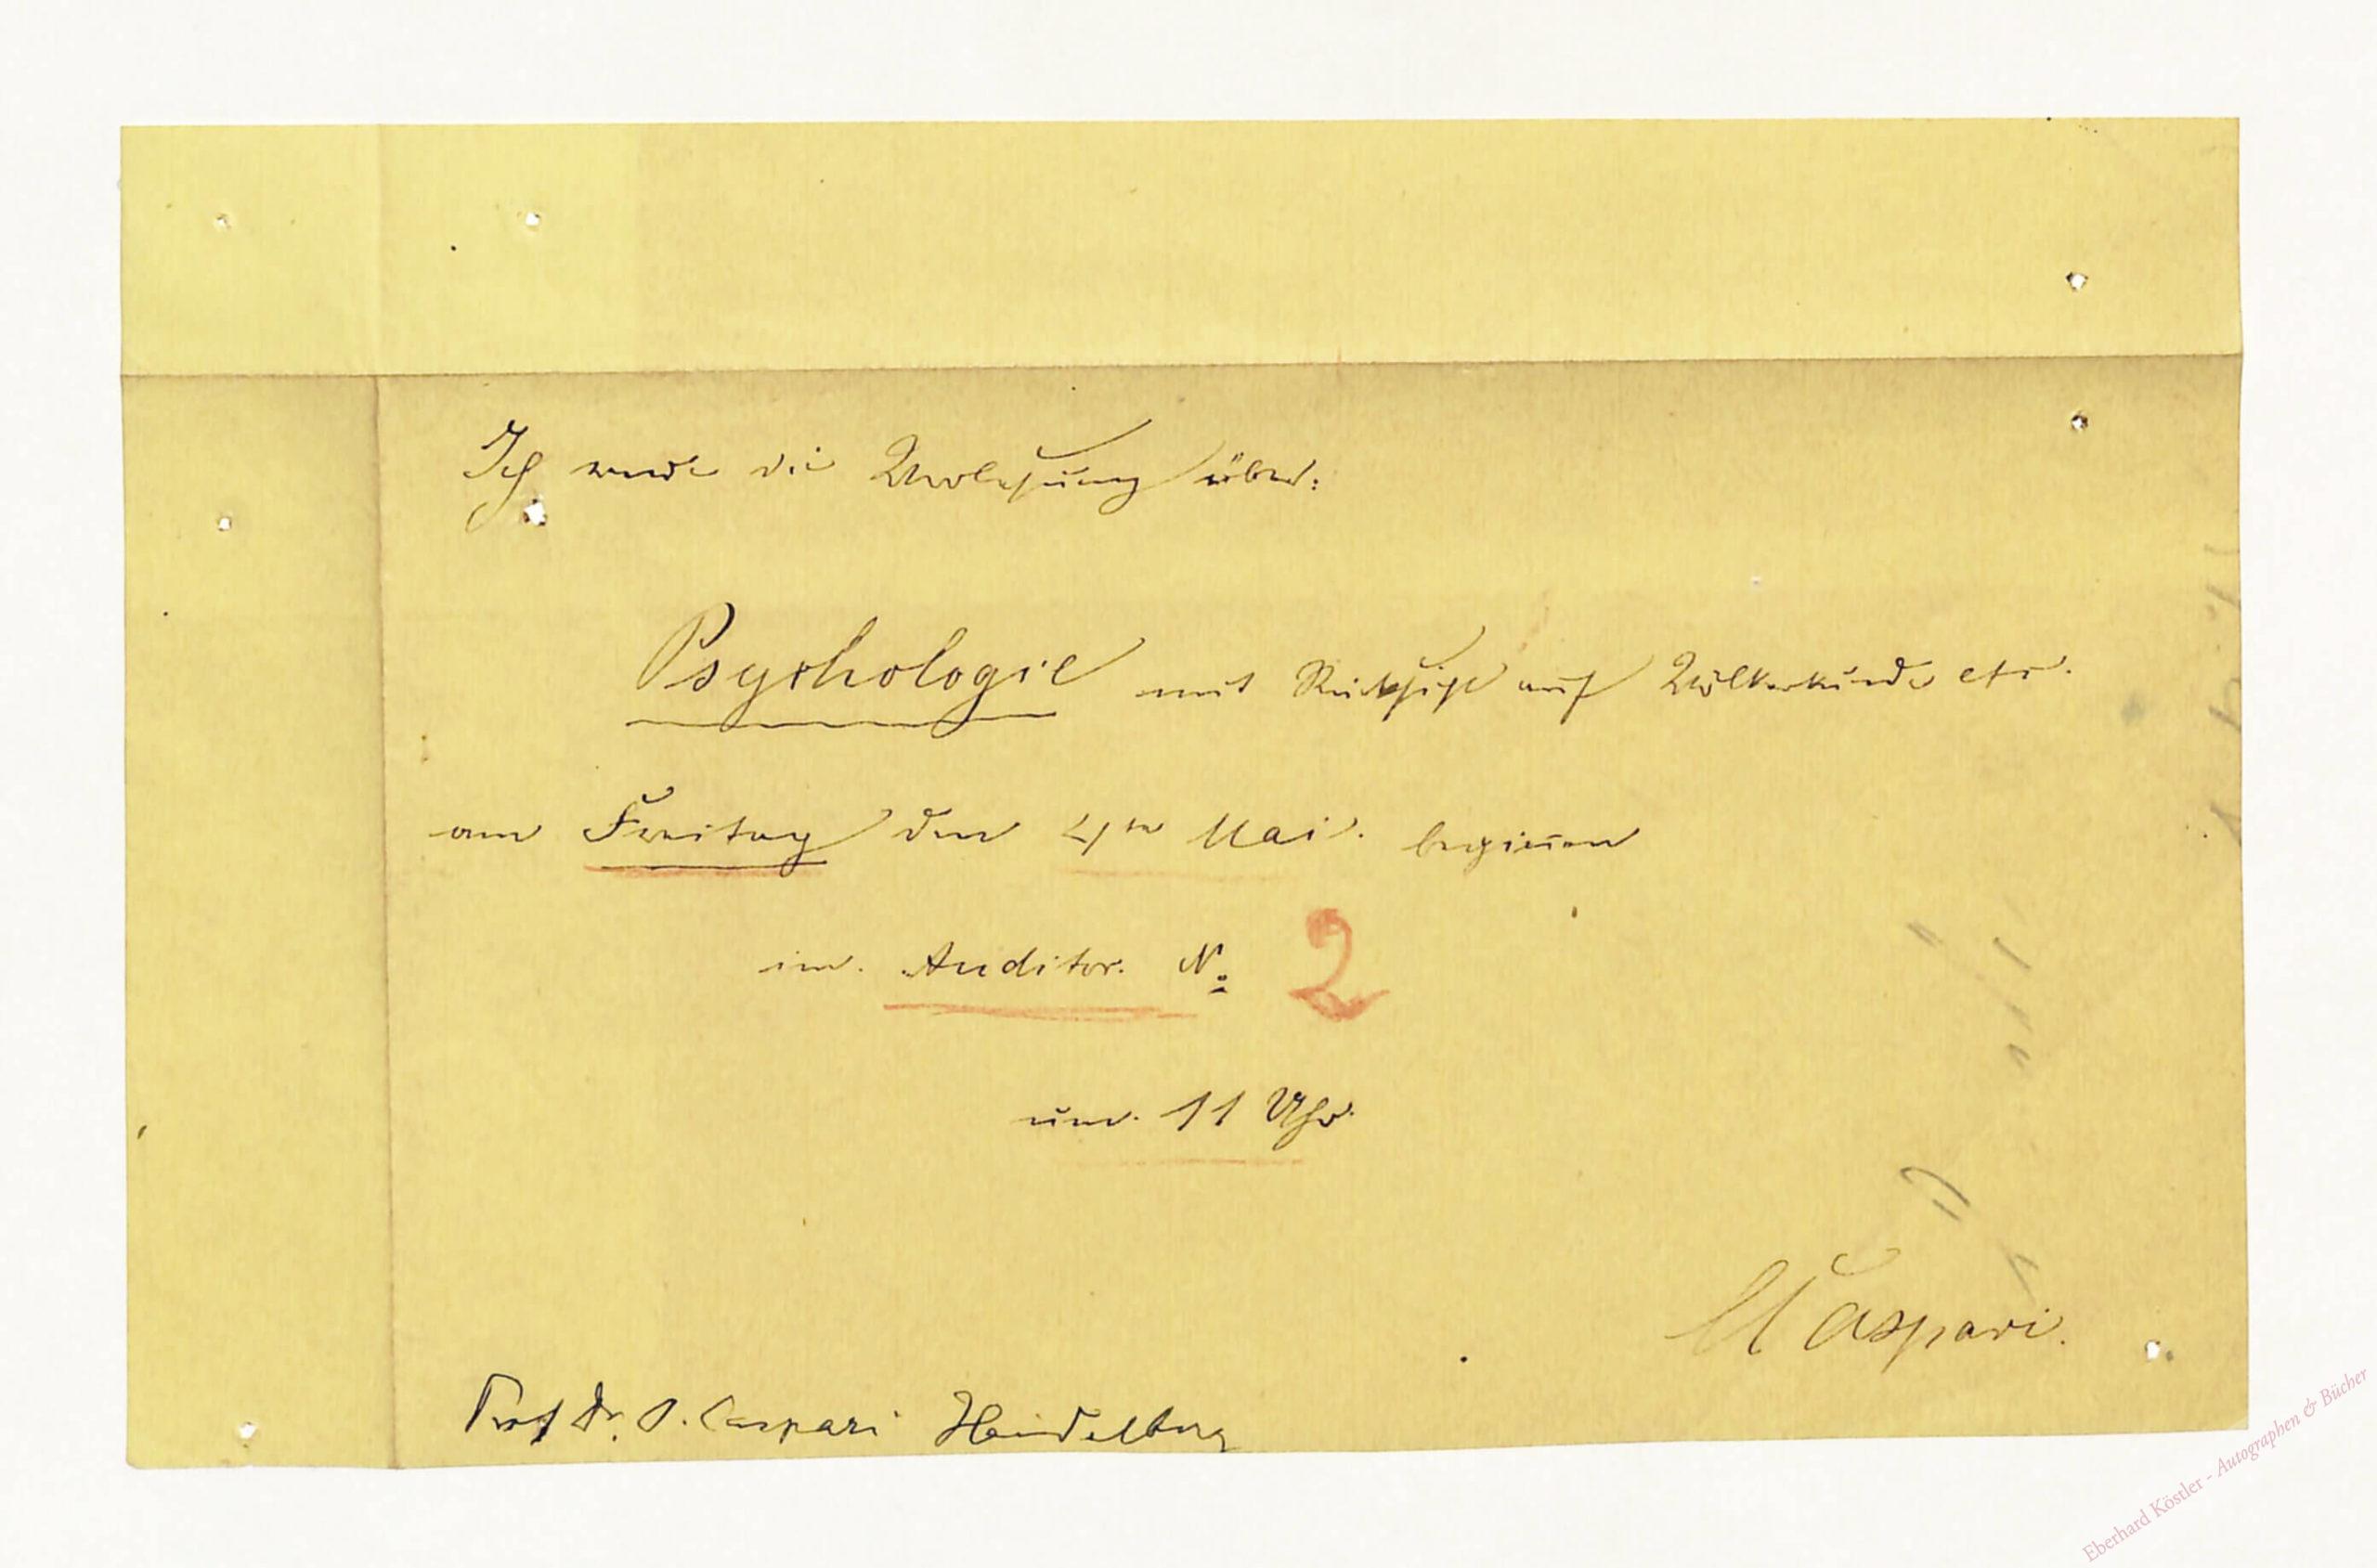 Ich werde die Vorlesung über:
Psychologie mit Rücksicht auf Völkerkunde etc.
am Freitag den 4ten Mai. beginnen
im. Auditor. No 2
um. 11 Uhr.
Caspari.
Prof Dr. O. Caspari Heidelberg
Eberhard Köstler - Autographen & Bücher